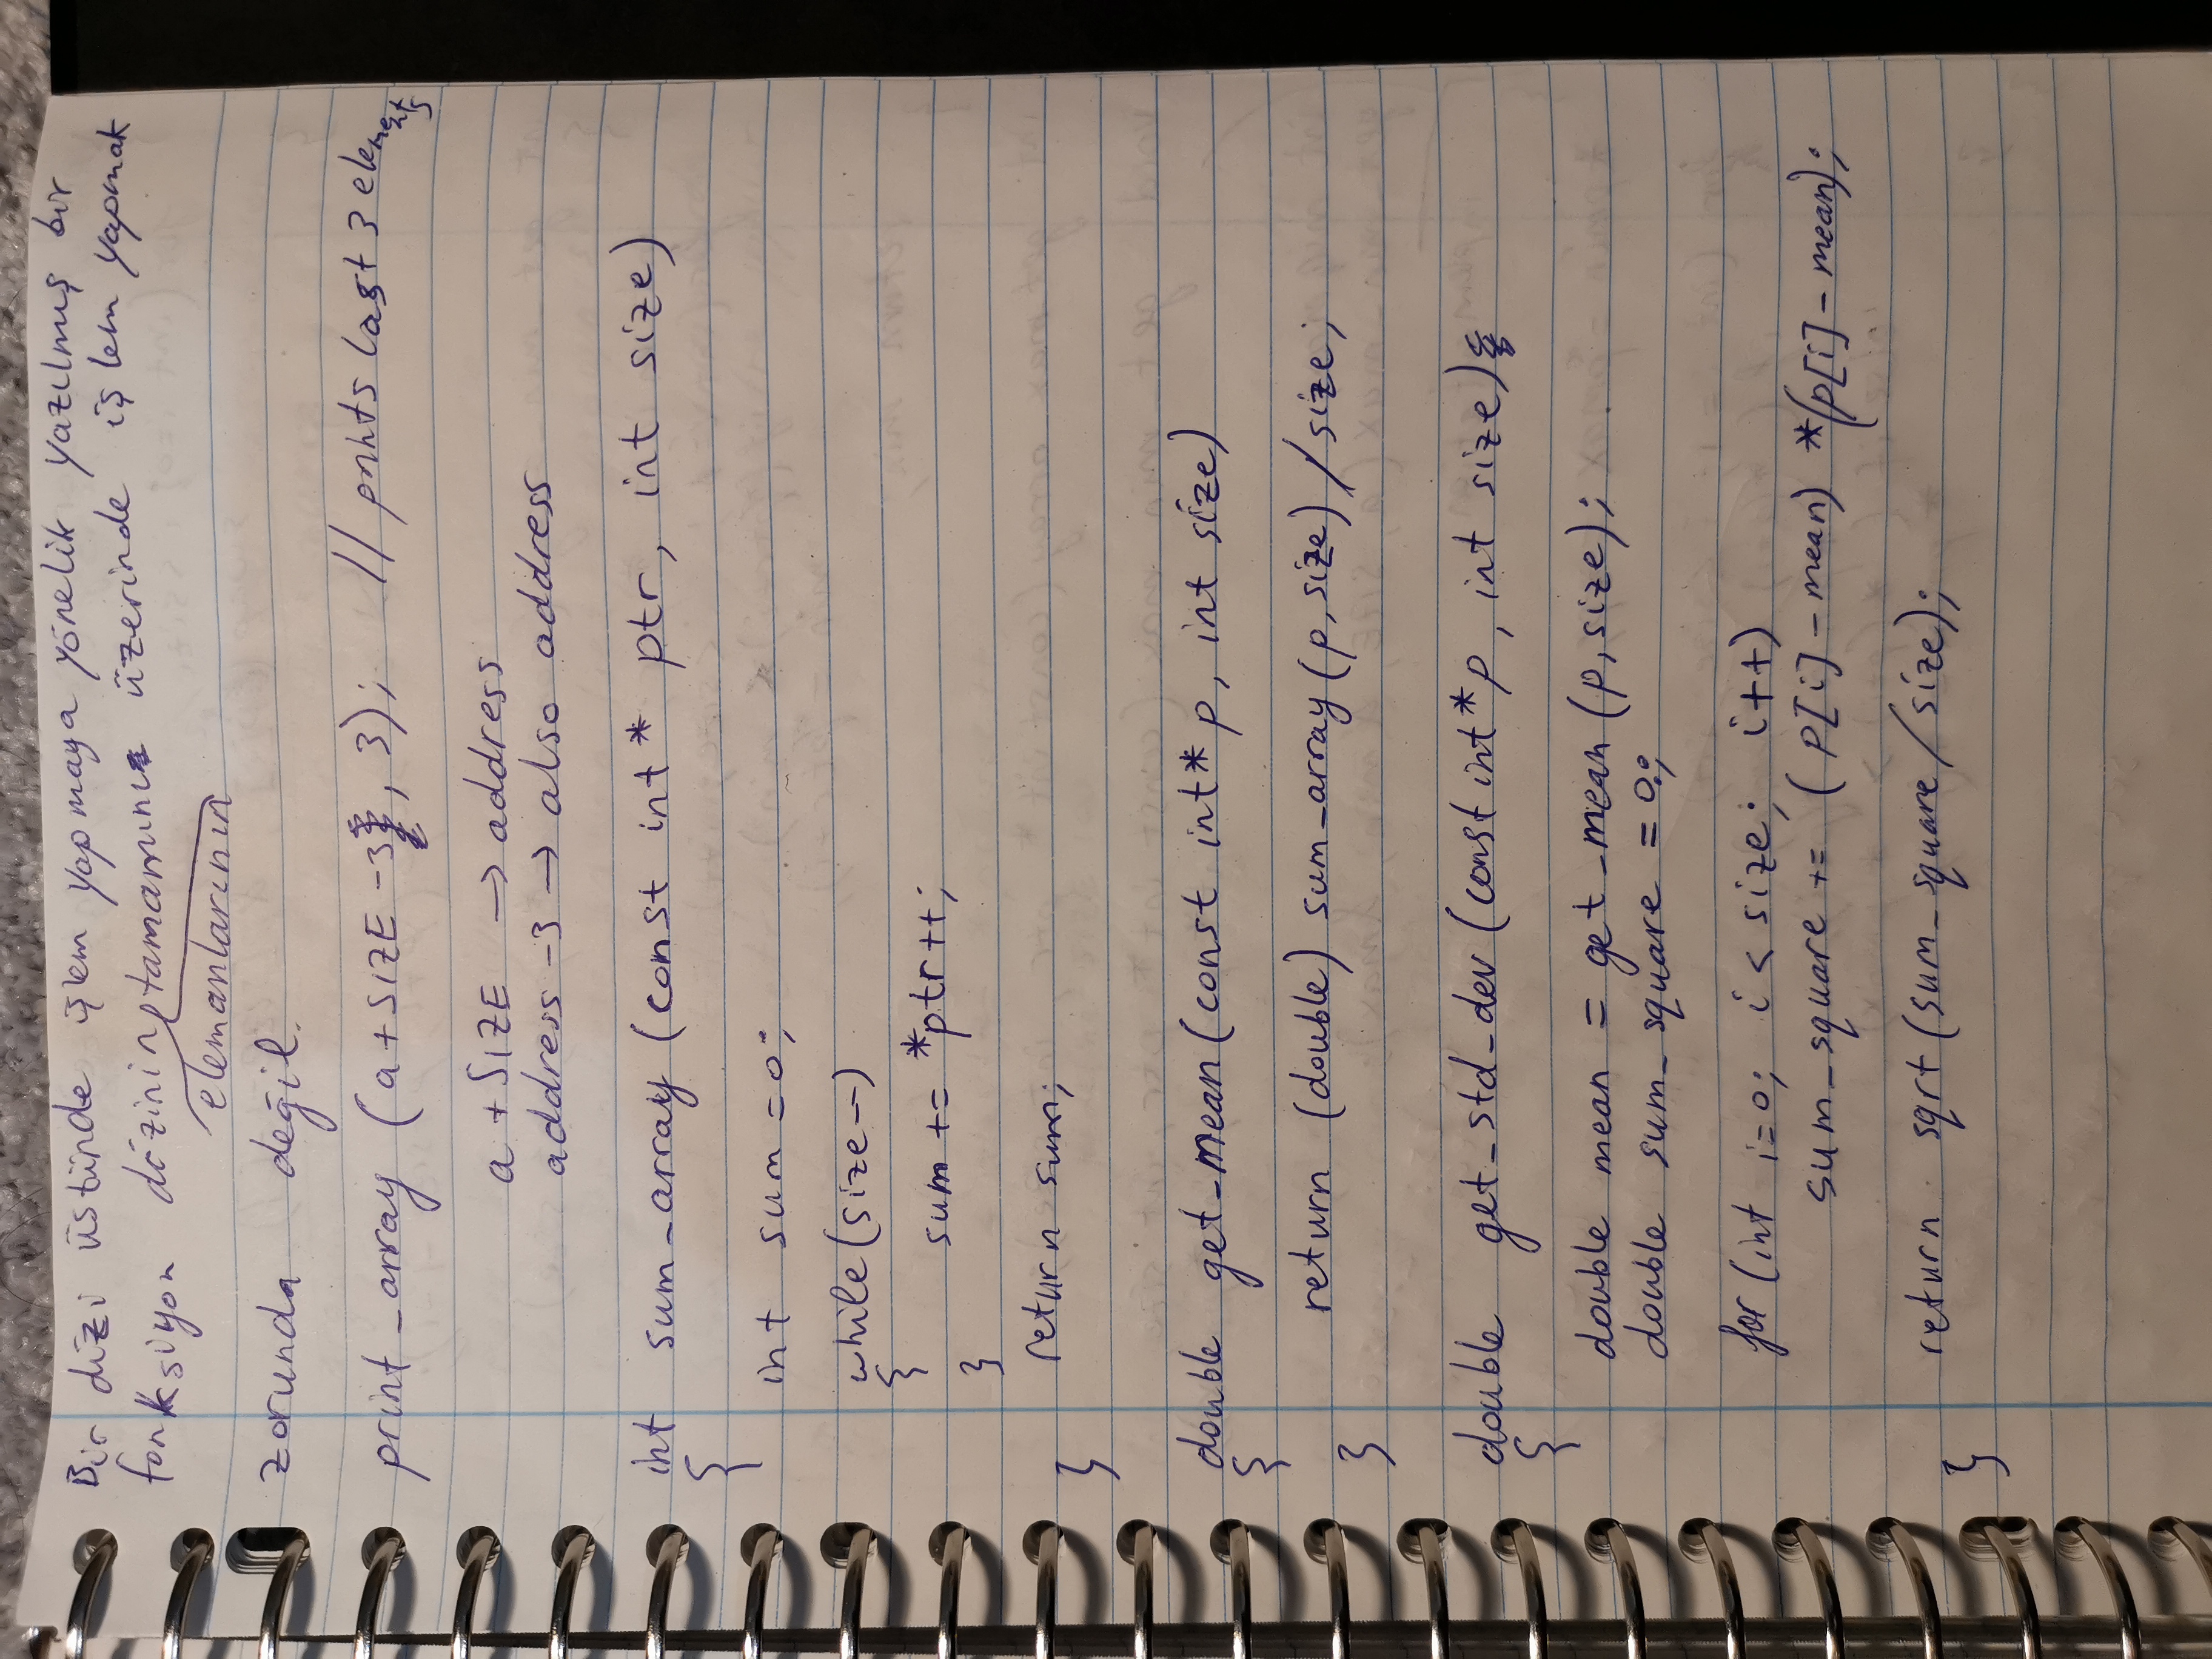 Bir dizi üstünde işlem yapmaya yönelik yazılmış bir
fonksiyon dizinin elemanlarının tamamını üzerinde işlem yapmak
zorunda değil.
print_array (a+SIZE -3, 3); // prints last 3 elements
a + SIZE → address
address -3 → also address
int sum_array (const int* ptr, int size)
{
int sum = 0;
while(size--)
{
sum += *ptr++;
}
return sum;
}
double get_mean(const int* p, int size)
{
return (double) sum_array (p, size) / size;
}
double get_std_dev (const int *p, int size)
{
double mean = get_mean (p, size);
double sum_square = 0.;
for (int i=0; i < size; i++)
sum_square += (p[i] - mean) *(p[i] - mean);
return sqrt (sum_square / size);
}